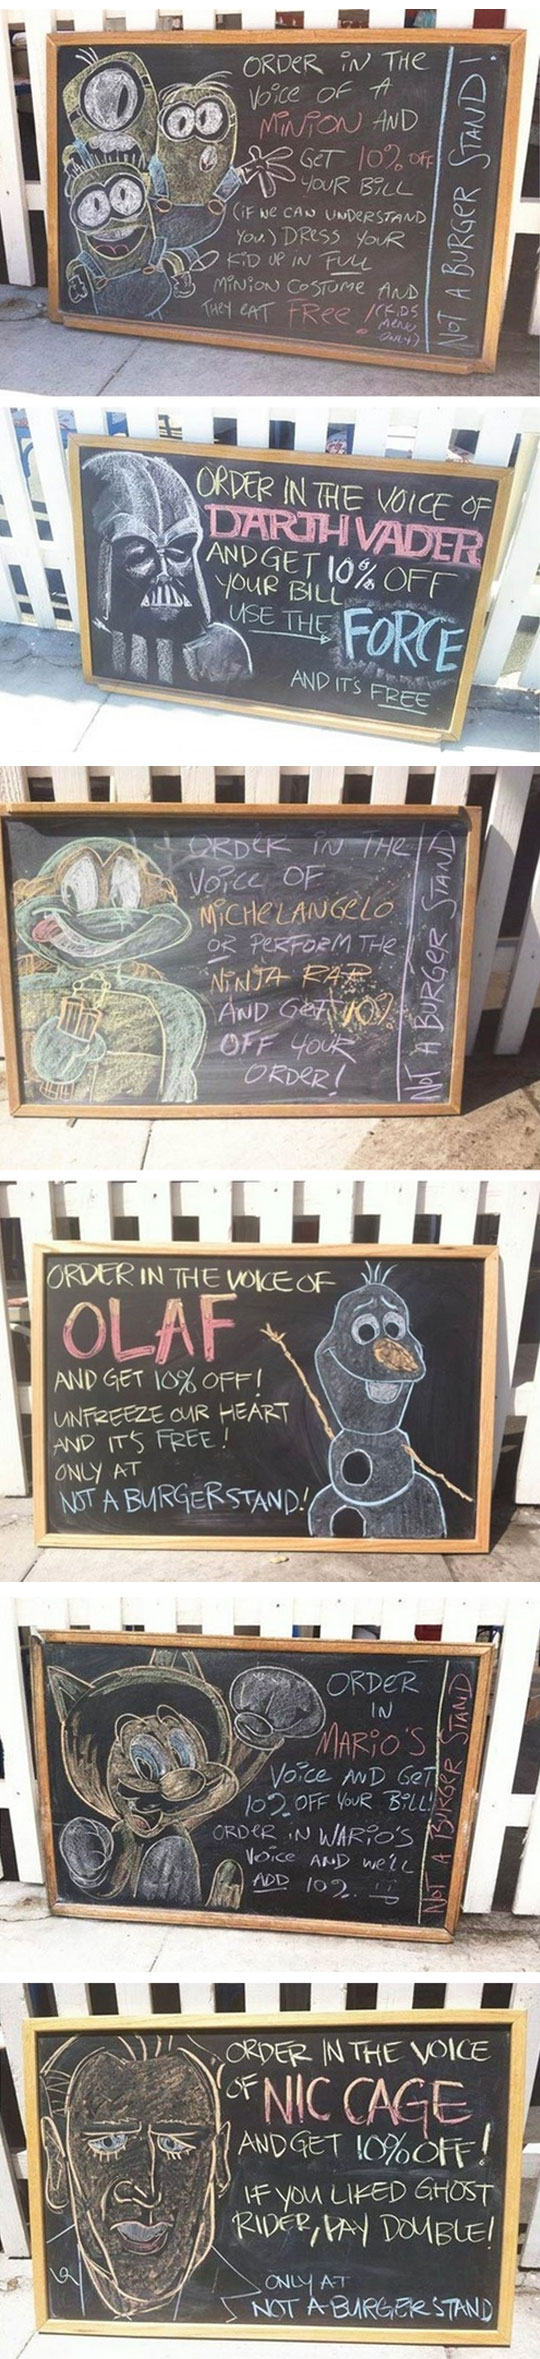 ORDER IN THE
VOICE OF A
MINION AND
GET 10% OFF
YOUR BILL
(IF WE CAN UNDERSTAND
YOU.) DRESS YOUR
KID UP IN FULL
MINION COSTUME AND
THEY EAT FREE! (KIDS
MENU
ONLY)
NOT A BURGER STAND!
ORDER IN THE VOICE OF
DARTH VADER
AND GET 10% OFF
YOUR BILL
USE THE FORCE
AND IT'S FREE
ORDER IN THE
VOICE OF
MICHELANGELO
OR PERFORM THE
NINJA RAP
AND GET 10%
OFF YOUR
ORDER!
NOT A BURGER STAND
ORDER IN THE VOICE OF
OLAF
AND GET 10% OFF!
UNFREEZE OUR HEART
AND IT'S FREE!
ONLY AT
NOT A BURGER STAND!
ORDER
IN
MARIO'S
VOICE AND GET
10% OFF YOUR BILL!
ORDER IN WARIO'S
VOICE AND WE'LL
ADD 10%
NOT A BURGER STAND
ORDER IN THE VOICE
OF NIC CAGE
AND GET 10% OFF!
IF YOU LIKED GHOST
RIDER, PAY DOUBLE!
ONLY AT
NOT A BURGER STAND